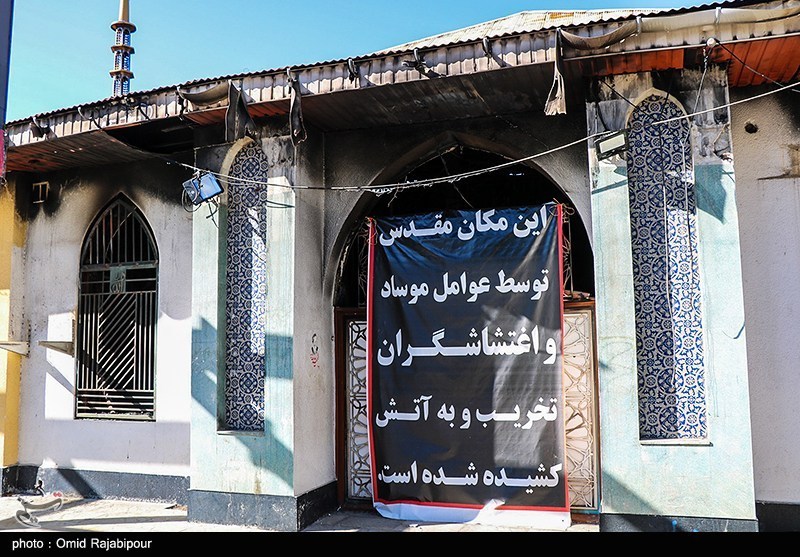 این مکان مقدس
توسط عوامل موساد
و اغتشاشگران
تخریب و به آتش
کشیده شده است.
photo : Omid Rajabipour